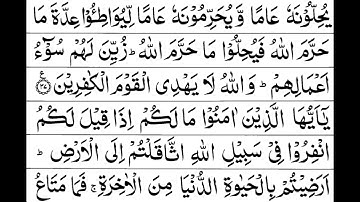 يُحِلُّوْنَهٗ عَامًا وَّيُحَرِّمُوْنَهٗ عَامًا لِّيُوَاطِـُٔوْا عِدَّةَ مَا
حَرَّمَ اللّٰهُ فَيُحِلُّوْا مَا حَرَّمَ اللّٰهُ ؕ زُيِّنَ لَهُمْ سُوْٓءُ
اَعْمَالِهِمْ ؕ وَاللّٰهُ لَا يَهْدِى الْقَوْمَ الْكٰفِرِيْنَ ﴿۳۷﴾
يٰۤاَيُّهَا الَّذِيْنَ اٰمَنُوْا مَا لَكُمْ اِذَا قِيْلَ لَكُمُ
انْفِرُوْا فِىْ سَبِيْلِ اللّٰهِ اثَّاقَلْتُمْ اِلَى الْاَرْضِ ؕ
اَرَضِيْتُمْ بِالْحَيٰوةِ الدُّنْيَا مِنَ الْاٰخِرَةِ ۚ فَمَا مَتَاعُ